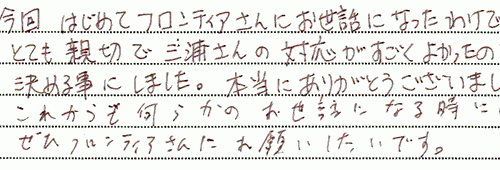 今回 はじめてフロンティアさんにお世話になったわけで
とても親切で三浦さんの対応がすごくよかったの
決める事にしました。本当にありがとうございまし
これからも何らかのお世話になる時に
ぜひフロンティアさんにお願いしたいです。